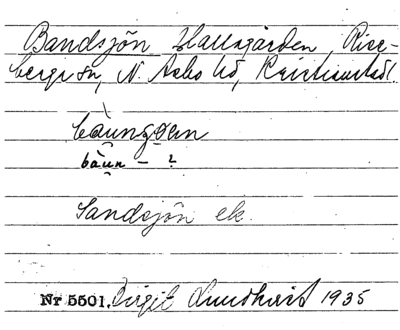 Bandsjön Hallagården, Rise-
berga sn, N. Åsbo hd, Kristianstad l.
bàunʒøen
bàun – ?
Sandsjön ek.
Nr 5501. Birgit Lundkvist 1935